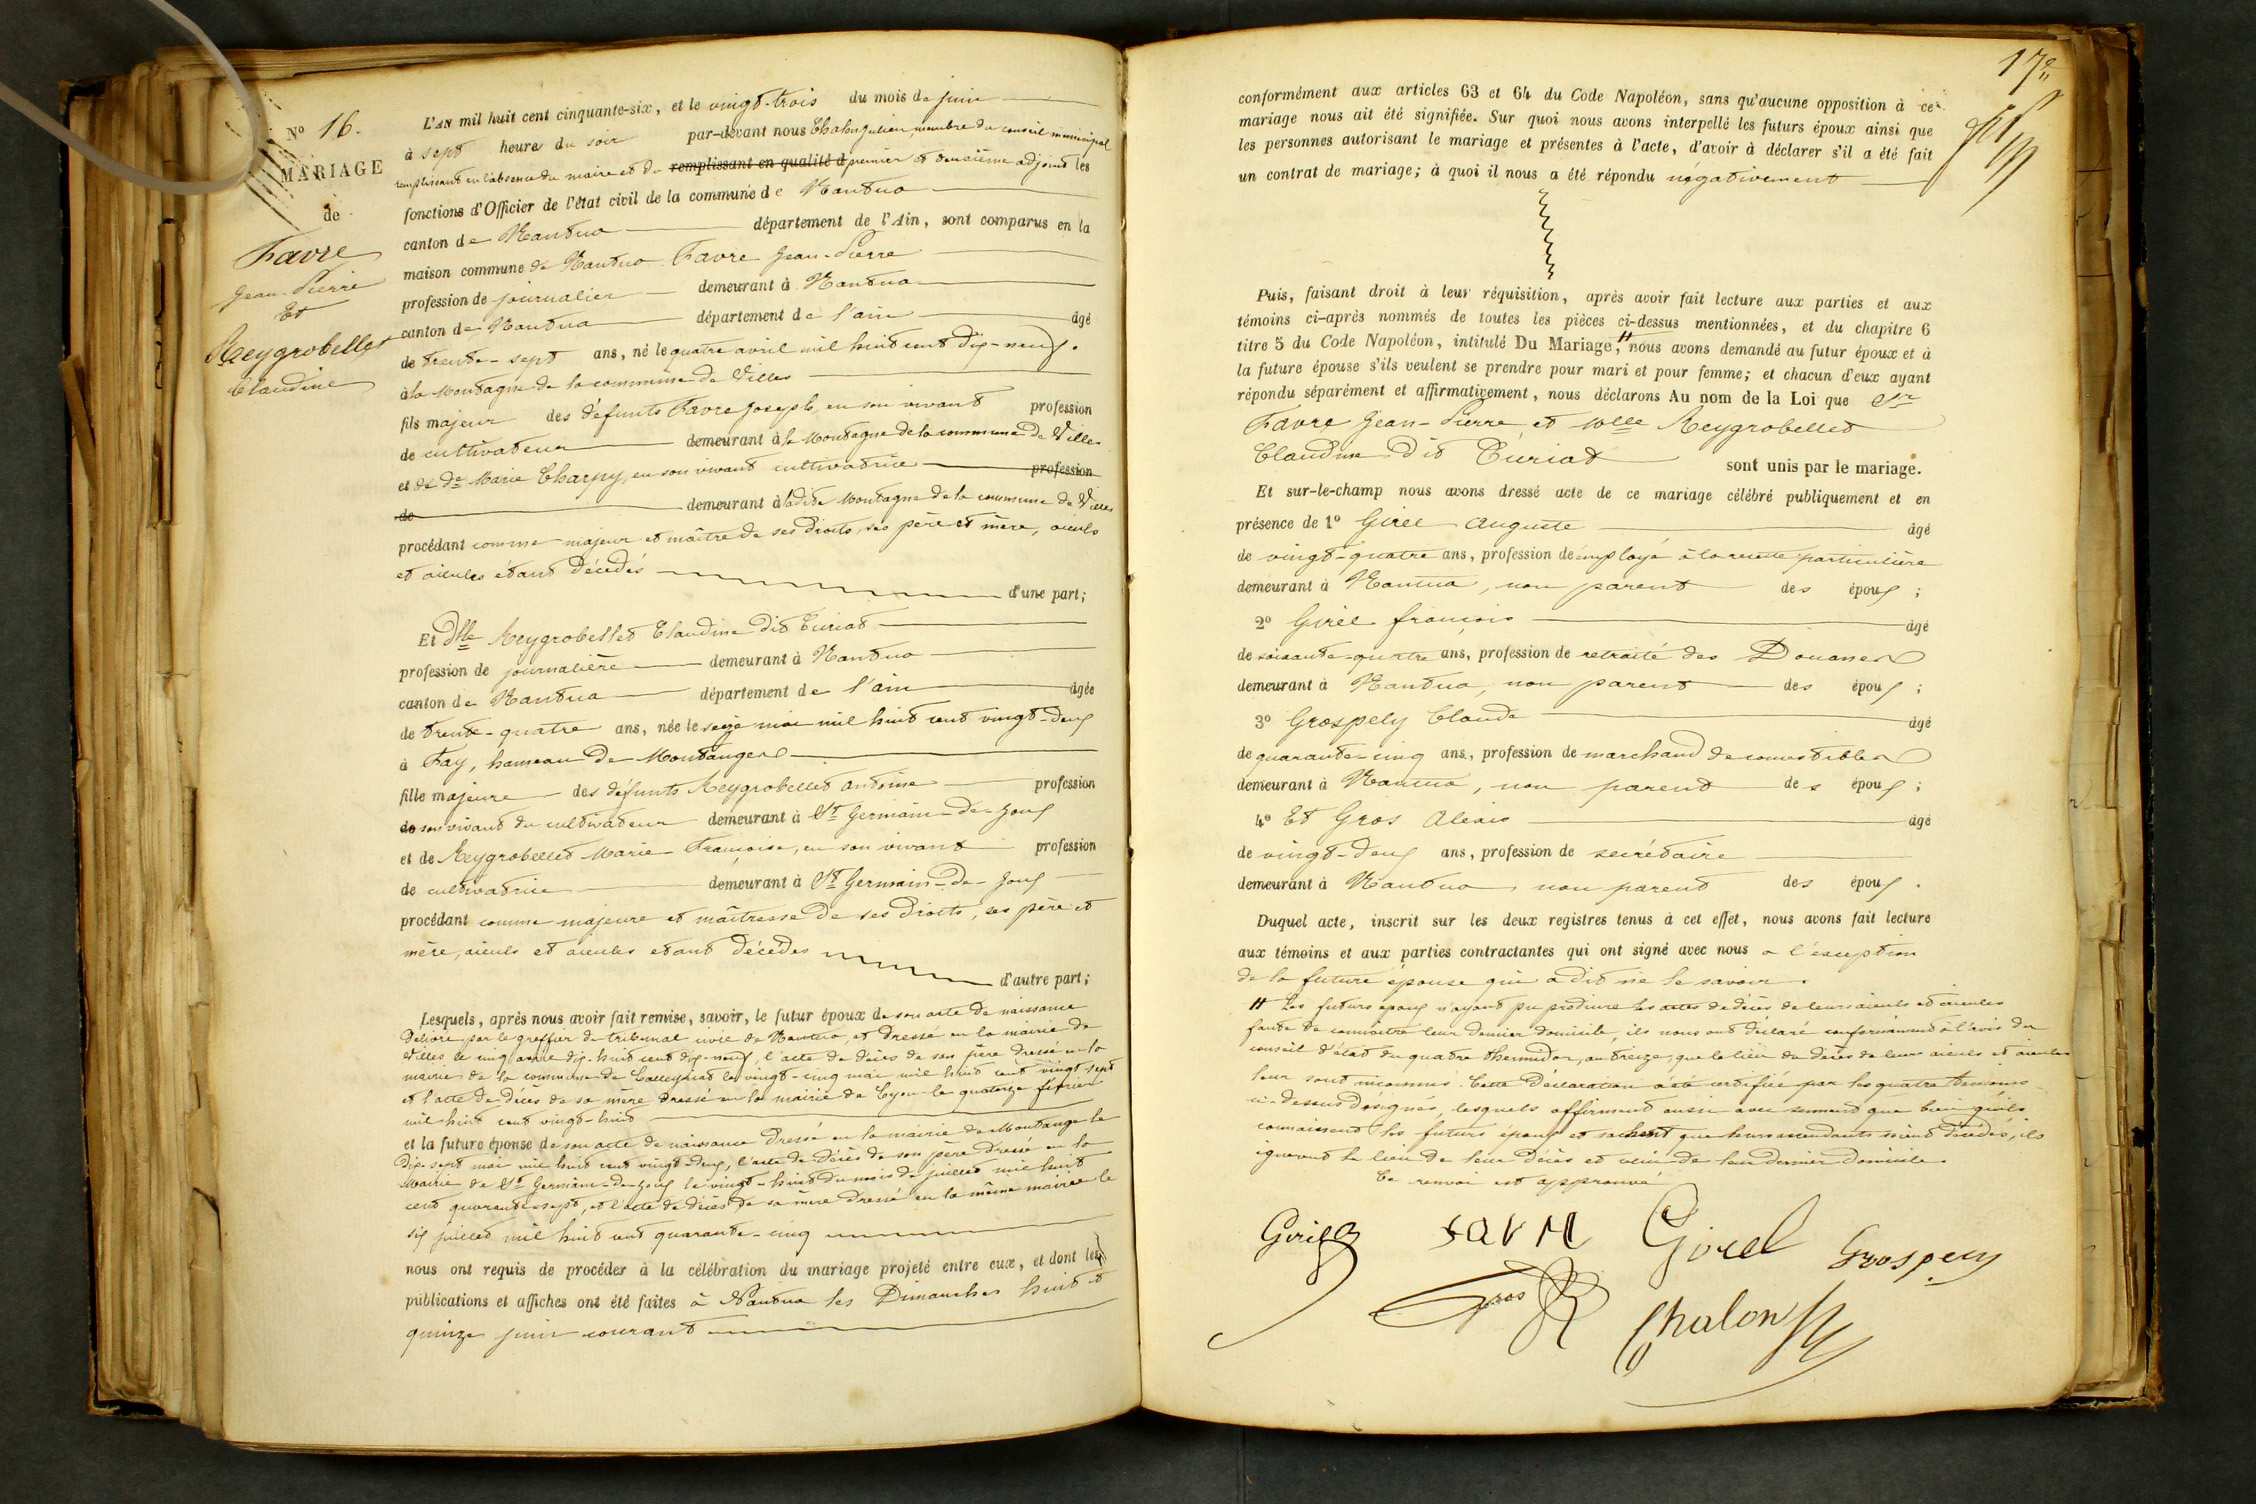 N° 16.
MARIAGE
de
Favre
Jean-Pierre
Et
Reygrobellet
Claudine
L'AN mil huit cent cinquante-six, et le vingt-trois du mois de juin
à sept heure du soir par-devant nous Chalon Julien membre du conseil municipal
remplissant en l'absence du maire et du remplissant en qualité d premier et deuxième adjoint les
fonctions d'Officier de l'état civil de la commune de Nantua
canton de Nantua département de l'Ain, sont comparus en la
maison commune de Nantua Favre Jean-Pierre
profession de journalier demeurant à Nantua
canton de Nantua département de l'ain âgé
de trente-sept ans, né le quatre avril mil huit cent dix-neuf.
à la Montagne de la commune de Villes
fils majeur des défunts Favre Joseph, en son vivant profession
de cultivateur demeurant à la Montagne de la commune de Villes
et de de Marie Charpy, en son vivant cultivatrice profession
de demeurant à ladite Montagne de la commune de Villes
procédant comme majeur et maître de ses droits, ses père et mère, aïeuls
et aïeules étant décédés d'une part;
Et dlle Reygrobellet Claudine dit Turiat
profession de journalière demeurant à Nantua
canton de Nantua département de l'ain âgée
de trente-quatre ans, née le seize mai mil huit cent vingt-deux
à Fay, hameau de Montanges
fille majeure des défunts Reygrobellet antoine profession
de son vivant du cultivateur demeurant à St Germain-de-Joux
et de Reygrobellet Marie Françoise, en son vivant profession
de cultivatrice demeurant à St Germain-de-Joux
procédant comme majeure et maîtresse de ses droits, ses père et
mère, aïeuls et aïeules étant décédés d'autre part;
Lesquels, après nous avoir fait remise, savoir, le futur époux de son acte de naissance
délivré par le greffier du tribunal civil de Nantua, et dressé en la mairie de
Villes le cinq avril dix-huit cent dix-neuf, l'acte de décès de son père dressé en la
mairie de la commune de le vingt-cinq mai mil huit cent vingt sept
et l'acte de décès de sa mère dressé en la mairie de Lyon le quatorze février
mil huit cent vingt-huit
et la future épouse de son acte de naissance dressé en la mairie de Montange le
dix-sept mai mil huit cent vingt-deux, l'acte de décès de son père dressé en la
Mairie de St Germain-de-Joux le vingt-huit du mois de juillet mil huit
cent quarante-sept, et l'acte de décès de sa mère dressé en la même mairie le
six juillet mil huit cent quarante-cinq
nous ont requis de procéder à la célébration du mariage projeté entre eux, et dont les
publications et affiches ont été faites à Nantua les Dimanches huit et
quinze juin courant
17e
conformément aux articles 63 et 64 du Code Napoléon, sans qu'aucune opposition à ce
mariage nous ait été signifiée. Sur quoi nous avons interpellé les futurs époux ainsi que
les personnes autorisant le mariage et présentes à l'acte, d'avoir à déclarer s'il a été fait
un contrat de mariage; à quoi il nous a été répondu négativement
Puis, faisant droit à leur réquisition, après avoir fait lecture aux parties et aux
témoins ci-après nommés de toutes les pièces ci-dessus mentionnées, et du chapitre 6
titre 5 du Code Napoléon, intitulé Du Mariage, # nous avons demandé au futur époux et à
la future épouse s'ils veulent se prendre pour mari et pour femme; et chacun d'eux ayant
répondu séparément et affirmativement, nous déclarons Au nom de la Loi que Sr
Favre Jean-Pierre et Melle Reygrobellet
Claudine dit Turiat sont unis par le mariage.
Et sur-le-champ nous avons dressé acte de ce mariage célébré publiquement et en
présence de 1° Girel Auguste âgé
de vingt-quatre ans, profession de employé à la recette particulière
demeurant à Nantua, non parent des époux;
2° Girel françois âgé
de soixante-quatre ans, profession de retraité des Douanes
demeurant à Nantua, non parent des époux;
3° Grospely Claude âgé
de quarante-cinq ans, profession de marchand de comestibles
demeurant à Nantua, non parent des époux;
4° Et Gros Alexis âgé
de vingt-deux ans, profession de secrétaire
demeurant à Nantua, non parent des époux.
Duquel acte, inscrit sur les deux registres tenus à cet effet, nous avons fait lecture
aux témoins et aux parties contractantes qui ont signé avec nous a l'exception
de la future épouse qui a dit ne le savoir.
# Les futurs époux n'ayant pu produire les actes de décès de leurs aïeuls et aïeules
faute de connaître leur dernier domicile, ils nous ont déclaré conformément à l'avis du
conseil d'état du quatre thermidor, an treize, que le lieu du décès de leurs aïeuls et aïeules
leur sont inconnus. Cette déclaration a été certifiée par les quatre témoins
ci-dessus désignés, lesquels affirment aussi avec serment que bien qu'ils
connaissent les futurs époux et sachent que leurs ascendants soient décédés, ils
ignorent le lieu de leur décès et celui de leur dernier domicile.
Ce renvoi est approuvé
Girel favre Girel Grospely
Gros Chalon